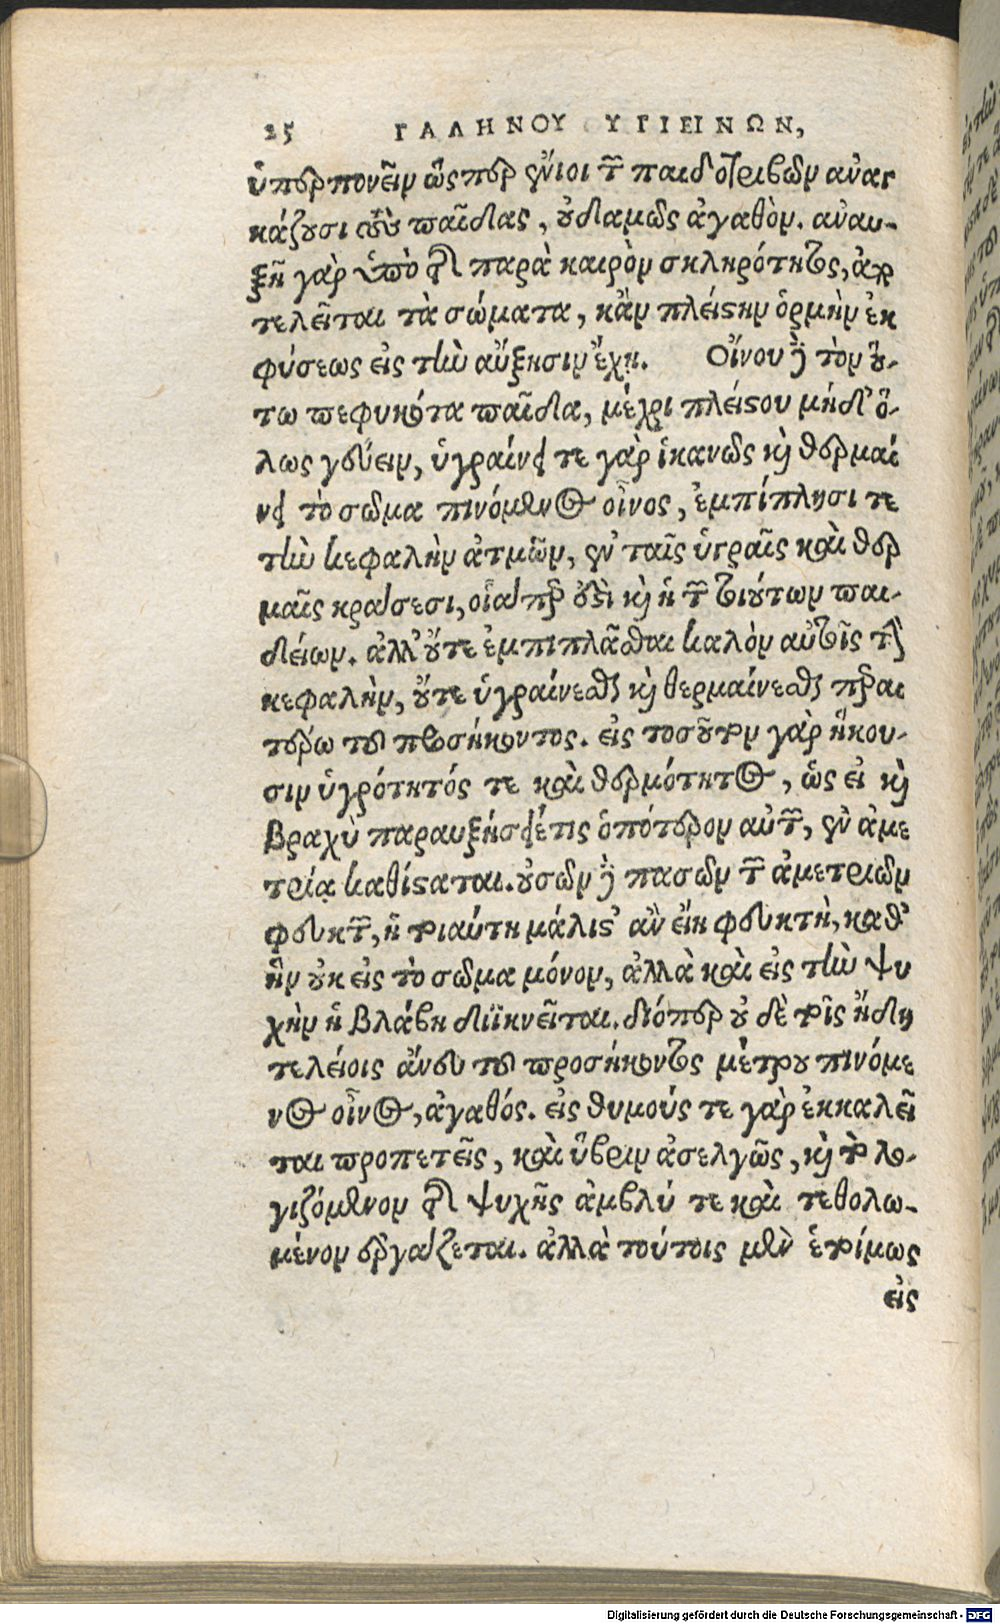 25 ΓΑΛΗΝΟΥ ΥΓΙΕΙΝΩΝ,
ὑπερπονεῖν ὥσπερ ἔνιοι τῶν παιδοτριβῶν ἀναγ
κάζουσι τοὺς παῖδας, οὐδαμῶς ἀγαθὸν. ἀναυ-
ξῆ γὰρ ὑπὸ τῆς παρὰ καιρὸν σκληρότητος, ἀπο
τελεῖται τὰ σώματα, κἂν πλείστην ὁρμὴν ἐκ
φύσεως εἰς τὴν αὔξησιν ἔχῃ. Οἴνου δὲ τὸν οὕ-
τω πεφυκότα παῖδα, μέχρι πλείστου μήδ' ὅ-
λως γεύειν, ὑγραίνει τε γὰρ ἱκανῶς καὶ θερμαί
νει τὸ σῶμα πινόμενος οἶνος, ἐμπίπλησι τε
τὴν κεφαλὴν ἀτμῶν, ἐν ταῖς ὑγραῖς καὶ θερ
μαῖς κράσεσι, οἵαπερ ἐστὶ καὶ ἡ τῶν τοιούτων παι-
δίων. ἀλλ' οὔτε ἐμπιπλᾶσθαι καλὸν αὐτοῖς τὴν
κεφαλὴν, οὔτε ὑγραίνεσθαι καὶ θερμαίνεσθαι περαι
τέρω τοῦ προσήκοντος. εἰς τοσοῦτον γὰρ ἥκου-
σιν ὑγρότητός τε καὶ θερμότητος, ὡς εἰ καὶ
βραχὺ παραυξήσειέ τις ὁπότερον αὐτῶν, ἐν ἀμε
τρίᾳ καθίσταται. οὐσῶν δὲ πασῶν τῶν ἀμετριῶν
φευκτῶν, ἡ τοιαύτη μάλιστ' ἂν εἴη φευκτὴ, καθ'
ἣν οὐκ εἰς τὸ σῶμα μόνον, ἀλλὰ καὶ εἰς τὴν ψυ
χὴν ἡ βλάβη διϊκνεῖται. διόπερ οὐδὲ τοῖς ἤδη
τελείοις ἄνευ τοῦ προσήκοντος μέτρου πινόμε
νος οἶνος, ἀγαθός. εἰς θυμούς τε γὰρ ἐκκαλεῖ
ται προπετεῖς, καὶ ὕβριν ἀσελγῶς, καὶ τὸ λο-
γιζόμενον τῆς ψυχῆς ἀμβλύ τε καὶ τεθολω-
μένον ἐργάζεται. ἀλλὰ τούτοις μὲν ἑτοίμως
εἰς
Digitalisierung gefördert durch die Deutsche Forschungsgemeinschaft - DFG